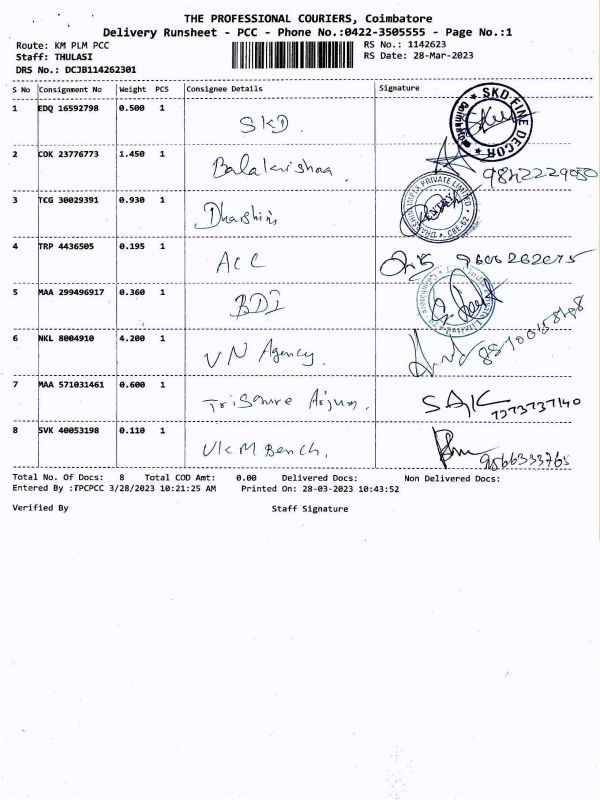 THE PROFESSIONAL COURIERS, Coimbatore
Delivery Runsheet - PCC - Phone No.:0422-3505555 - Page No.:1
Route: KM PLM PCC
RS No.: 1142623
Staff: THULASI
RS Date: 28-Mar-2023
DRS No.: DCJB114262301
S No Consignment No Weight PCS Consignee Details Signature
1 EDQ 16592798 0.500 1 SKD. SKD FINE DECOR
2 COK 23776773 1.450 1 Balakrishna. 9842229050
3 TCG 30029391 0.930 1 Dharshini PRIVATE LIMITED CBE-62
4 TRP 4436505 0.195 1 ACC 9606262075
5 MAA 299496917 0.360 1 BDI
6 NKL 8004910 4.200 1 VN Agency.
7 MAA 571031461 0.600 1 Arjun. 7373737140
8 SVK 40053198 0.110 1 VKM Bench. 9566333765
Total No. Of Docs: 8 Total COD Amt: 0.00 Delivered Docs: Non Delivered Docs:
Entered By :TPCPCC 3/28/2023 10:21:25 AM Printed On: 28-03-2023 10:43:52
Verified By Staff Signature